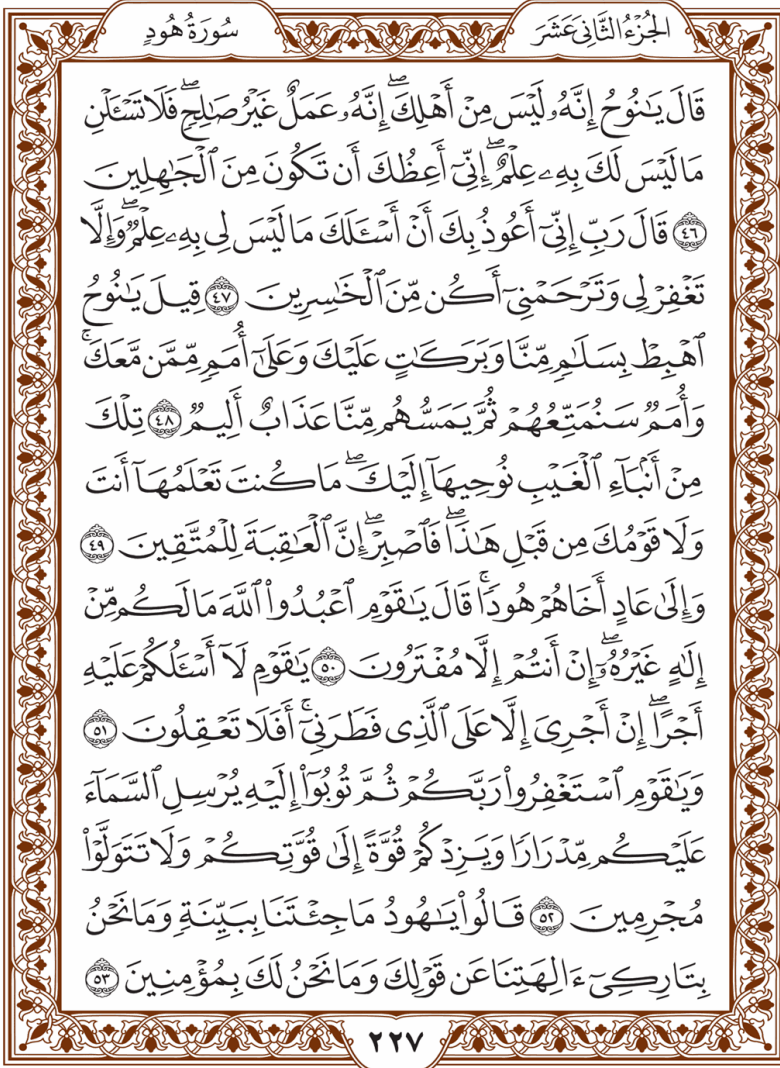 الجُزْءُ الثَّانِي عَشَرَ
سُورَةُ هُودٍ
قَالَ يَٰنُوحُ إِنَّهُۥ لَيْسَ مِنْ أَهْلِكَۖ إِنَّهُۥ عَمَلٌ غَيْرُ صَٰلِحٖۖ فَلَا تَسْـَٔلْنِ
مَا لَيْسَ لَكَ بِهِۦ عِلْمٌۖ إِنِّيٓ أَعِظُكَ أَن تَكُونَ مِنَ ٱلْجَٰهِلِينَ
٤٦ قَالَ رَبِّ إِنِّيٓ أَعُوذُ بِكَ أَنْ أَسْـَٔلَكَ مَا لَيْسَ لِي بِهِۦ عِلْمٌۖ وَإِلَّا
تَغْفِرْ لِي وَتَرْحَمْنِيٓ أَكُن مِّنَ ٱلْخَٰسِرِينَ ٤٧ قِيلَ يَٰنُوحُ
ٱهْبِطْ بِسَلَٰمٍ مِّنَّا وَبَرَكَٰتٍ عَلَيْكَ وَعَلَىٰٓ أُمَمٍ مِّمَّن مَّعَكَۚ
وَأُمَمٌ سَنُمَتِّعُهُمْ ثُمَّ يَمَسُّهُم مِّنَّا عَذَابٌ أَلِيمٌ ٤٨ تِلْكَ
مِنْ أَنۢبَآءِ ٱلْغَيْبِ نُوحِيهَآ إِلَيْكَۖ مَا كُنتَ تَعْلَمُهَآ أَنتَ
وَلَا قَوْمُكَ مِن قَبْلِ هَٰذَاۖ فَٱصْبِرْۖ إِنَّ ٱلْعَٰقِبَةَ لِلْمُتَّقِينَ ٤٩
وَإِلَىٰ عَادٍ أَخَاهُمْ هُودًاۚ قَالَ يَٰقَوْمِ ٱعْبُدُوا۟ ٱللَّهَ مَا لَكُم مِّنْ
إِلَٰهٍ غَيْرُهُۥٓۖ إِنْ أَنتُمْ إِلَّا مُفْتَرُونَ ٥٠ يَٰقَوْمِ لَآ أَسْـَٔلُكُمْ عَلَيْهِ
أَجْرًاۖ إِنْ أَجْرِيَ إِلَّا عَلَى ٱلَّذِي فَطَرَنِيٓۚ أَفَلَا تَعْقِلُونَ ٥١
وَيَٰقَوْمِ ٱسْتَغْفِرُوا۟ رَبَّكُمْ ثُمَّ تُوبُوٓا۟ إِلَيْهِ يُرْسِلِ ٱلسَّمَآءَ
عَلَيْكُم مِّدْرَارًا وَيَزِدْكُمْ قُوَّةً إِلَىٰ قُوَّتِكُمْ وَلَا تَتَوَلَّوْا۟
مُجْرِمِينَ ٥٢ قَالُوا۟ يَٰهُودُ مَا جِئْتَنَا بِبَيِّنَةٍ وَمَا نَحْنُ
بِتَارِكِيٓ ءَالِهَتِنَا عَن قَوْلِكَ وَمَا نَحْنُ لَكَ بِمُؤْمِنِينَ ٥٣
٢٢٧